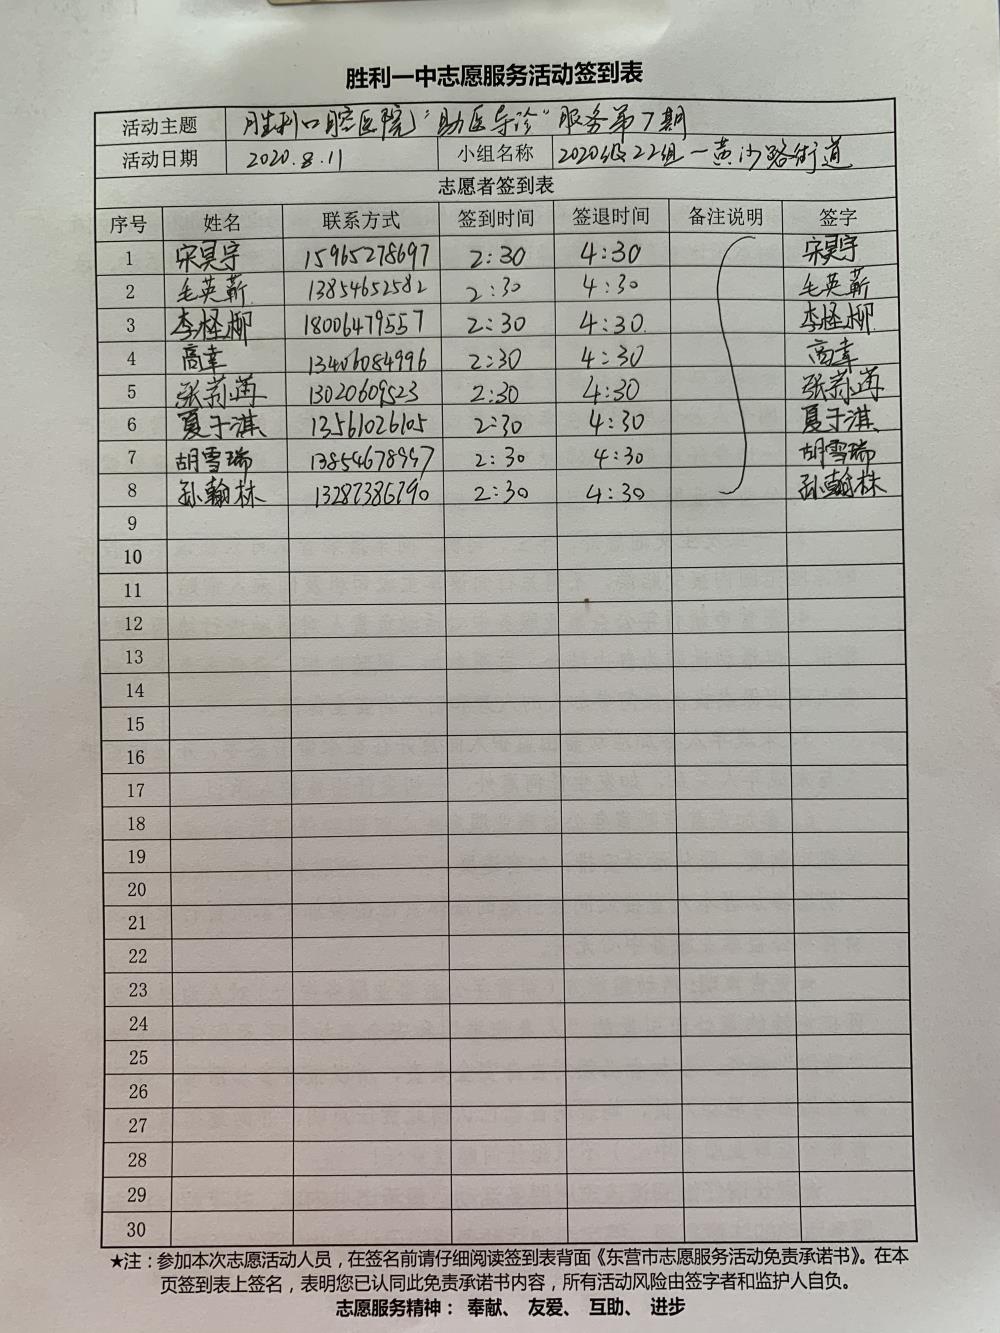 胜利一中志愿服务活动签到表
活动主题 胜利口腔医院"助医导诊"服务第7期
活动日期 2020.8.11 小组名称 2020级22组-黄河路街道
志愿者签到表
序号 姓名 联系方式 签到时间 签退时间 备注说明 签字
1 宋昊宇 15965278697 2:30 4:30 宋昊宇
2 毛英蕲 13854652582 2:30 4:30 毛英蕲
3 李怪柳 18006479557 2:30 4:30. 李怪柳
4 高幸 13406084996 2:30 4:30 高幸
5 张 13020609523 2:30 4:30 张
6 夏于淇 13561026105 2:30 4:30 夏于淇
7 胡雪瑞 2:30 4:30 胡雪瑞
8 孙翰林 13287386790 2:30 4:30 孙翰林
9
10
11
12
13
14
15
16
17
18
19
20
21
22
23
24
25
26
27
28
29
30
★注：参加本次志愿活动人员，在签名前请仔细阅读签到表背面《东营市志愿服务活动免责承诺书》。在本
页签到表上签名，表明您已认同此免责承诺书内容，所有活动风险由签字者和监护人自负。
志愿服务精神： 奉献、 友爱、 互助、 进步